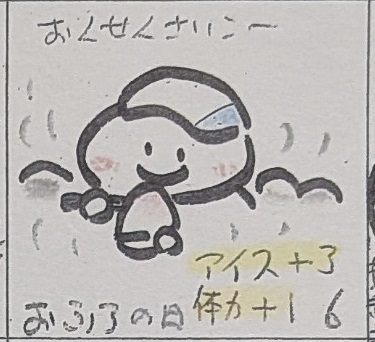 おんせんさいこー
アイス+3
おふろの日 体力+1 6